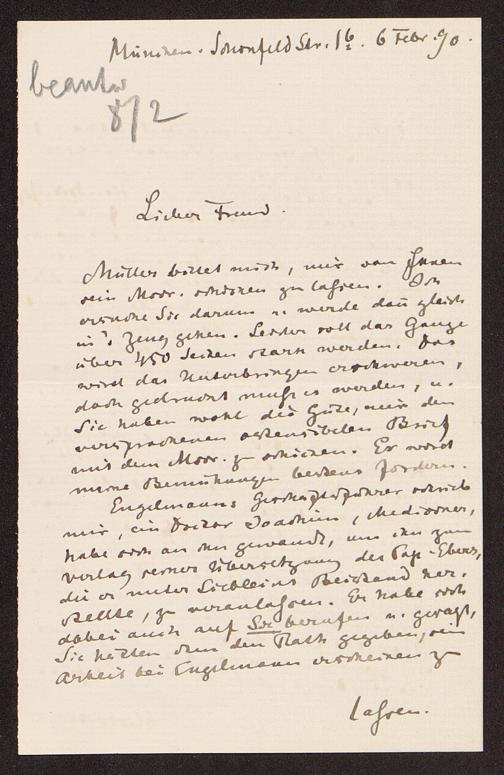 München. Schönfeld Str. 1b. 6 Febr. 90.
beantw
8/2
Lieber Freund.
Müller bittet mich, mir von Ihnen
sein Mscr. schicken zu lassen. Ich
ersuche Sie darum u. werde dan gleich
in's Zeug gehen. Leider soll das Ganze
über 450 Seiten stark werden. Das
wird das Unterbringen erschweren,
doch gedruckt muß es werden, u.
Sie haben wohl die Güte, mir den
versprochenen ostensibelen Brief
mit dem Mscr. zu schicken. Er wird
meine Bemühungen bestens fördern.
Engelmanns Geschäftsführer schrieb
mir, ein Doctor Joachim, Mediciner,
habe sich an ihn gewandt, um ihn zum
Verlag seiner Übersetzung des Pap. Ebers,
die er unter Liebleins Beistand her-
stellte, zu veranlassen. Er habe sich
dabei auch auf Sie berufen u. gesagt,
Sie hätten ihm den Rath gegeben, sein
Arbeit bei Engelmann erscheinen zu
lassen.